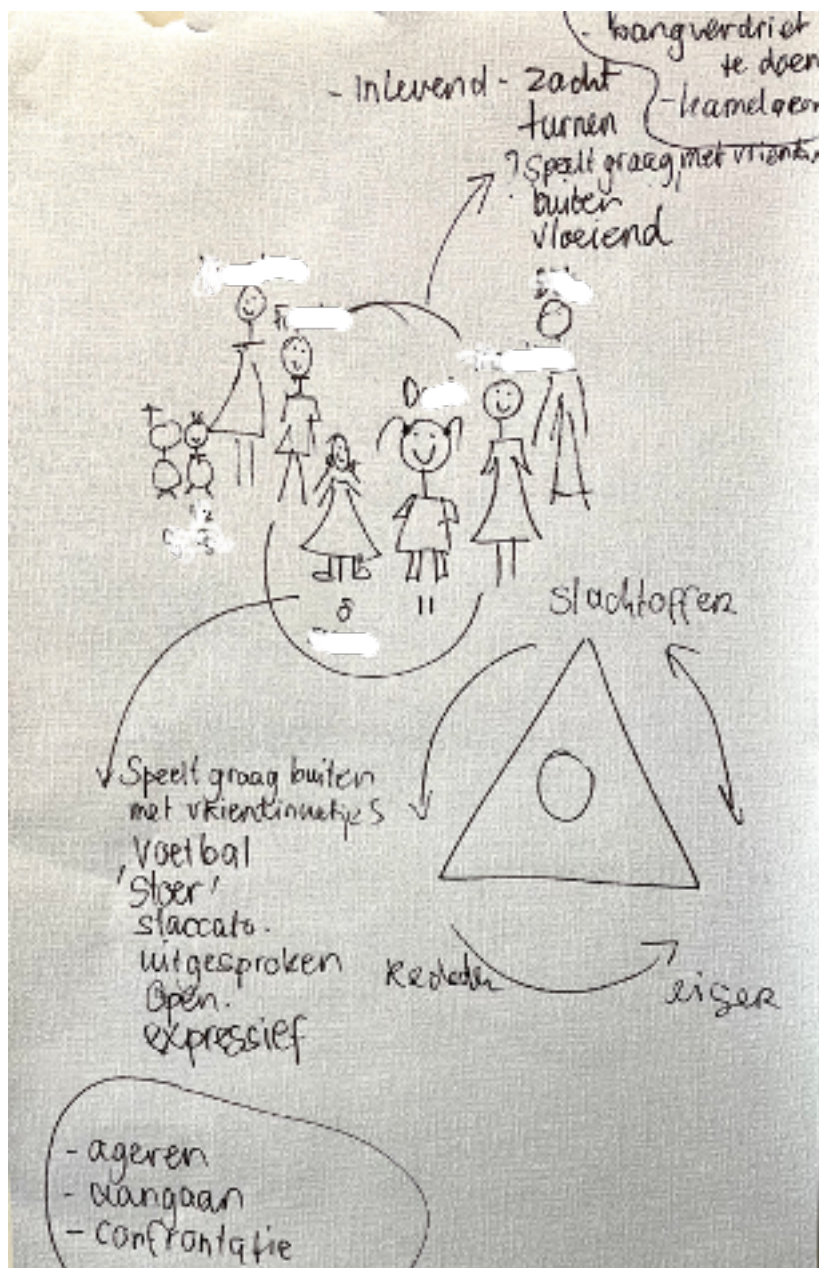 - bang verdriet
te doen
- Inlevend - zacht
turnen
? Speelt graag met
buiten
vloeiend
D
8
11
Slachtoffer
Speelt graag buiten
met vrientinnetjes
Voetbal
'Stoer'
staccato.
uitgesproken
Open.
expressief
Redder
eiser
- ageren
- aangaan
- confrontatie